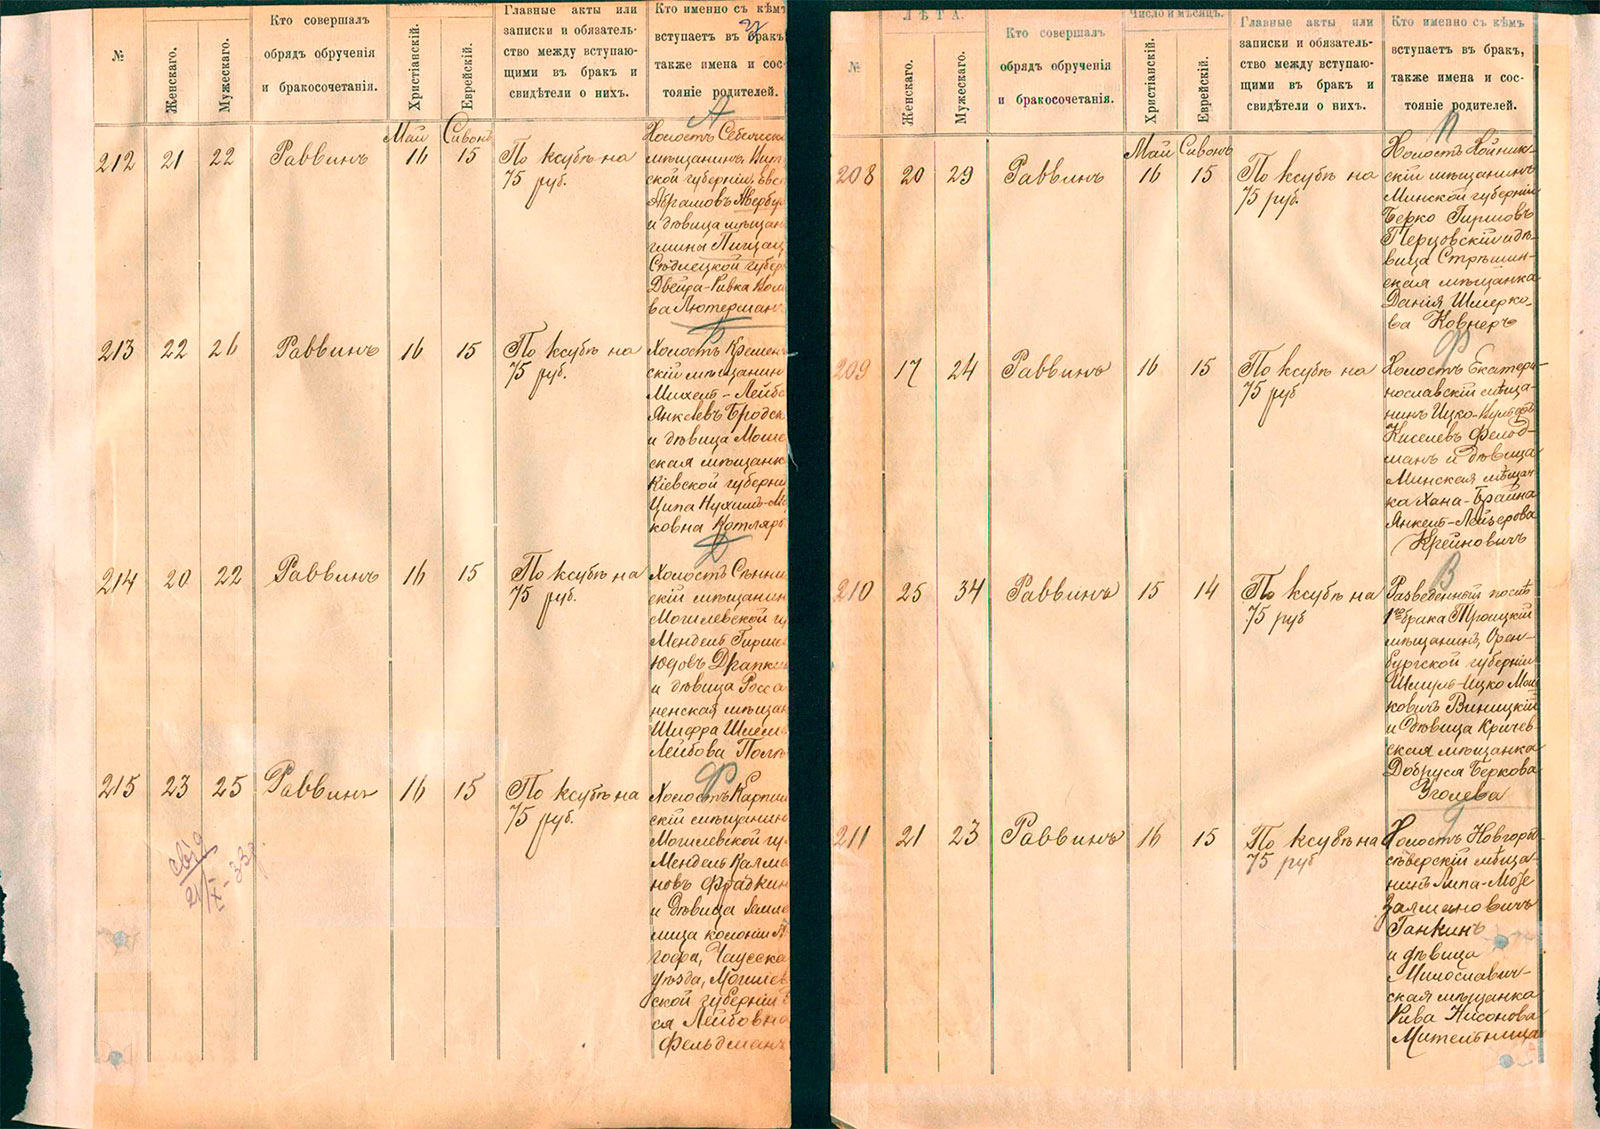 №
Женскаго.
Мужескаго.
Кто совершалъ
обрядъ обрученія
и бракосочетанія.
Христіанскій.
Еврейскій.
Главные акты или
записки и обязатель-
ство между вступаю-
щими въ бракъ и
свидѣтели о нихъ.
Кто именно съ кѣмъ
вступаетъ въ бракъ
также имена и сос-
тояніе родителей.
Май Сивонъ
А
212 21 22 Раввинъ 16 15 По ксубѣ на
75 руб.
Холостъ
мѣщанинъ
ской губерніи
Абрамовъ
и дѣвица
гмины
Сѣдлецкой
Двейра-Ривка
ва Лютерман
Б
213 22 26 Раввинъ 16 15 По ксубѣ на
75 руб.
Холостъ Кремен
скій мѣщанин
Михель-Лейба
Янкелевъ Бродск
и дѣвица Моше
ская мѣщанк
Кіевской губерн
Ципа
ковна Котляр
Д
214 20 22 Раввинъ 16 15 По ксубѣ на
75 руб.
Холостъ Сѣнни
скій мѣщанин
Могилевской гу
Мендель Гирше
Юдовъ Драпки
и дѣвица Росса
ненская мѣщан
Шифра
Лейбова
Ф
215 23 25 Раввинъ 16 15 По ксубѣ на
75 руб.
Холостъ
скій мѣщанин
Могилевской гу
Мендель Калма
новъ Фрадкин
и дѣвица
колоніи
Чаусска
уѣзда, Могилев
ской губерніи
ся Лейбовна
Фельдман
ЛѢТА.
Число и мѣсяцъ.
№
Женскаго.
Мужескаго.
Кто совершалъ
обрядъ обрученія
и бракосочетанія.
Христіанскій.
Еврейскій.
Главные акты или
записки и обязатель-
ство между вступаю-
щими въ бракъ и
свидѣтели о нихъ.
Кто именно съ кѣмъ
вступаетъ въ бракъ,
также имена и сос-
тояніе родителей.
Май Сивонъ
П
208 20 29 Раввинъ 16 15 По ксубѣ на
75 руб.
Холостъ Хойник-
скій мѣщанинъ
Минской губерніи
Берко Гиршовъ
Перцовскій и дѣ-
вица Стрѣшин-
ская мѣщанка
Данія Шмерко-
ва Ковнеръ
Ф
209 17 24 Раввинъ 16 15 По ксубѣ на
75 руб
Холостъ Екатери-
нославскій мѣща-
нинъ Ицко-
Киселевъ Фельд-
манъ и дѣвица
Минская мѣщан
ка Хана-Брайна
Янкель-Лейзерова
Крейновичъ
В
210 25 34 Раввинъ 15 14 По ксубѣ на
75 руб
Разведенный послѣ
1го брака Троицкій
мѣщанинъ, Орен-
бургской губерніи
Шмуль-Ицко
ковичъ Виницкій
и дѣвица Кричев
ская мѣщанка
Добруся Беркова
Уголева
Г
211 21 23 Раввинъ 16 15 По ксубѣ на
75 руб
Холостъ Новгоръ-
сѣверскій мѣща-
нинъ Липа-Мозе
Залмановичъ
Ганкинъ
и дѣвица
Милославич-
ская мѣщанка
Рива Нисонова
Мительница